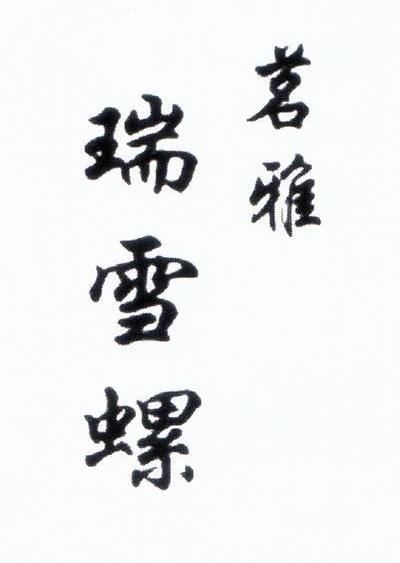 茗雅
瑞雪螺